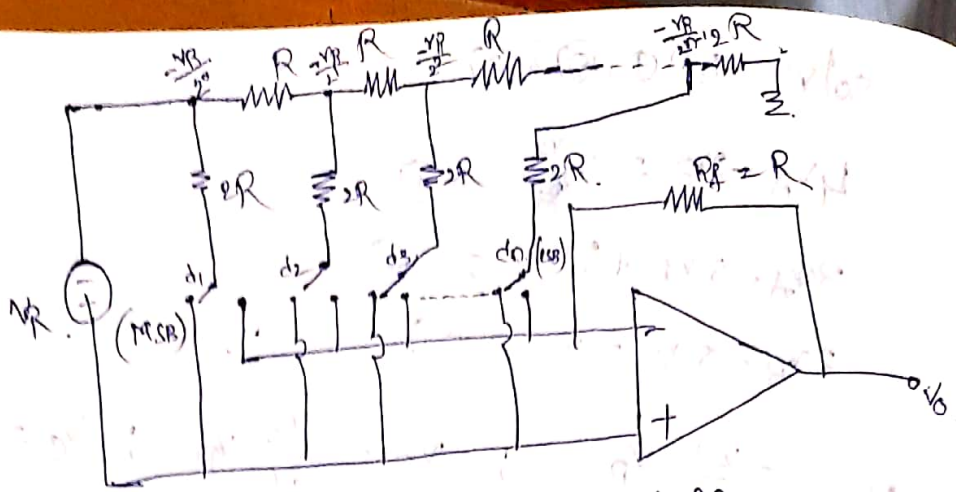 -VR/2⁰ R -VR/2 R -VR/2² R -VR/2ⁿ⁻¹ 2R
2R 2R 2R 2R Rf = R
d1 d2 d3 dn (LSB)
VR (MSB)
-
+
V0